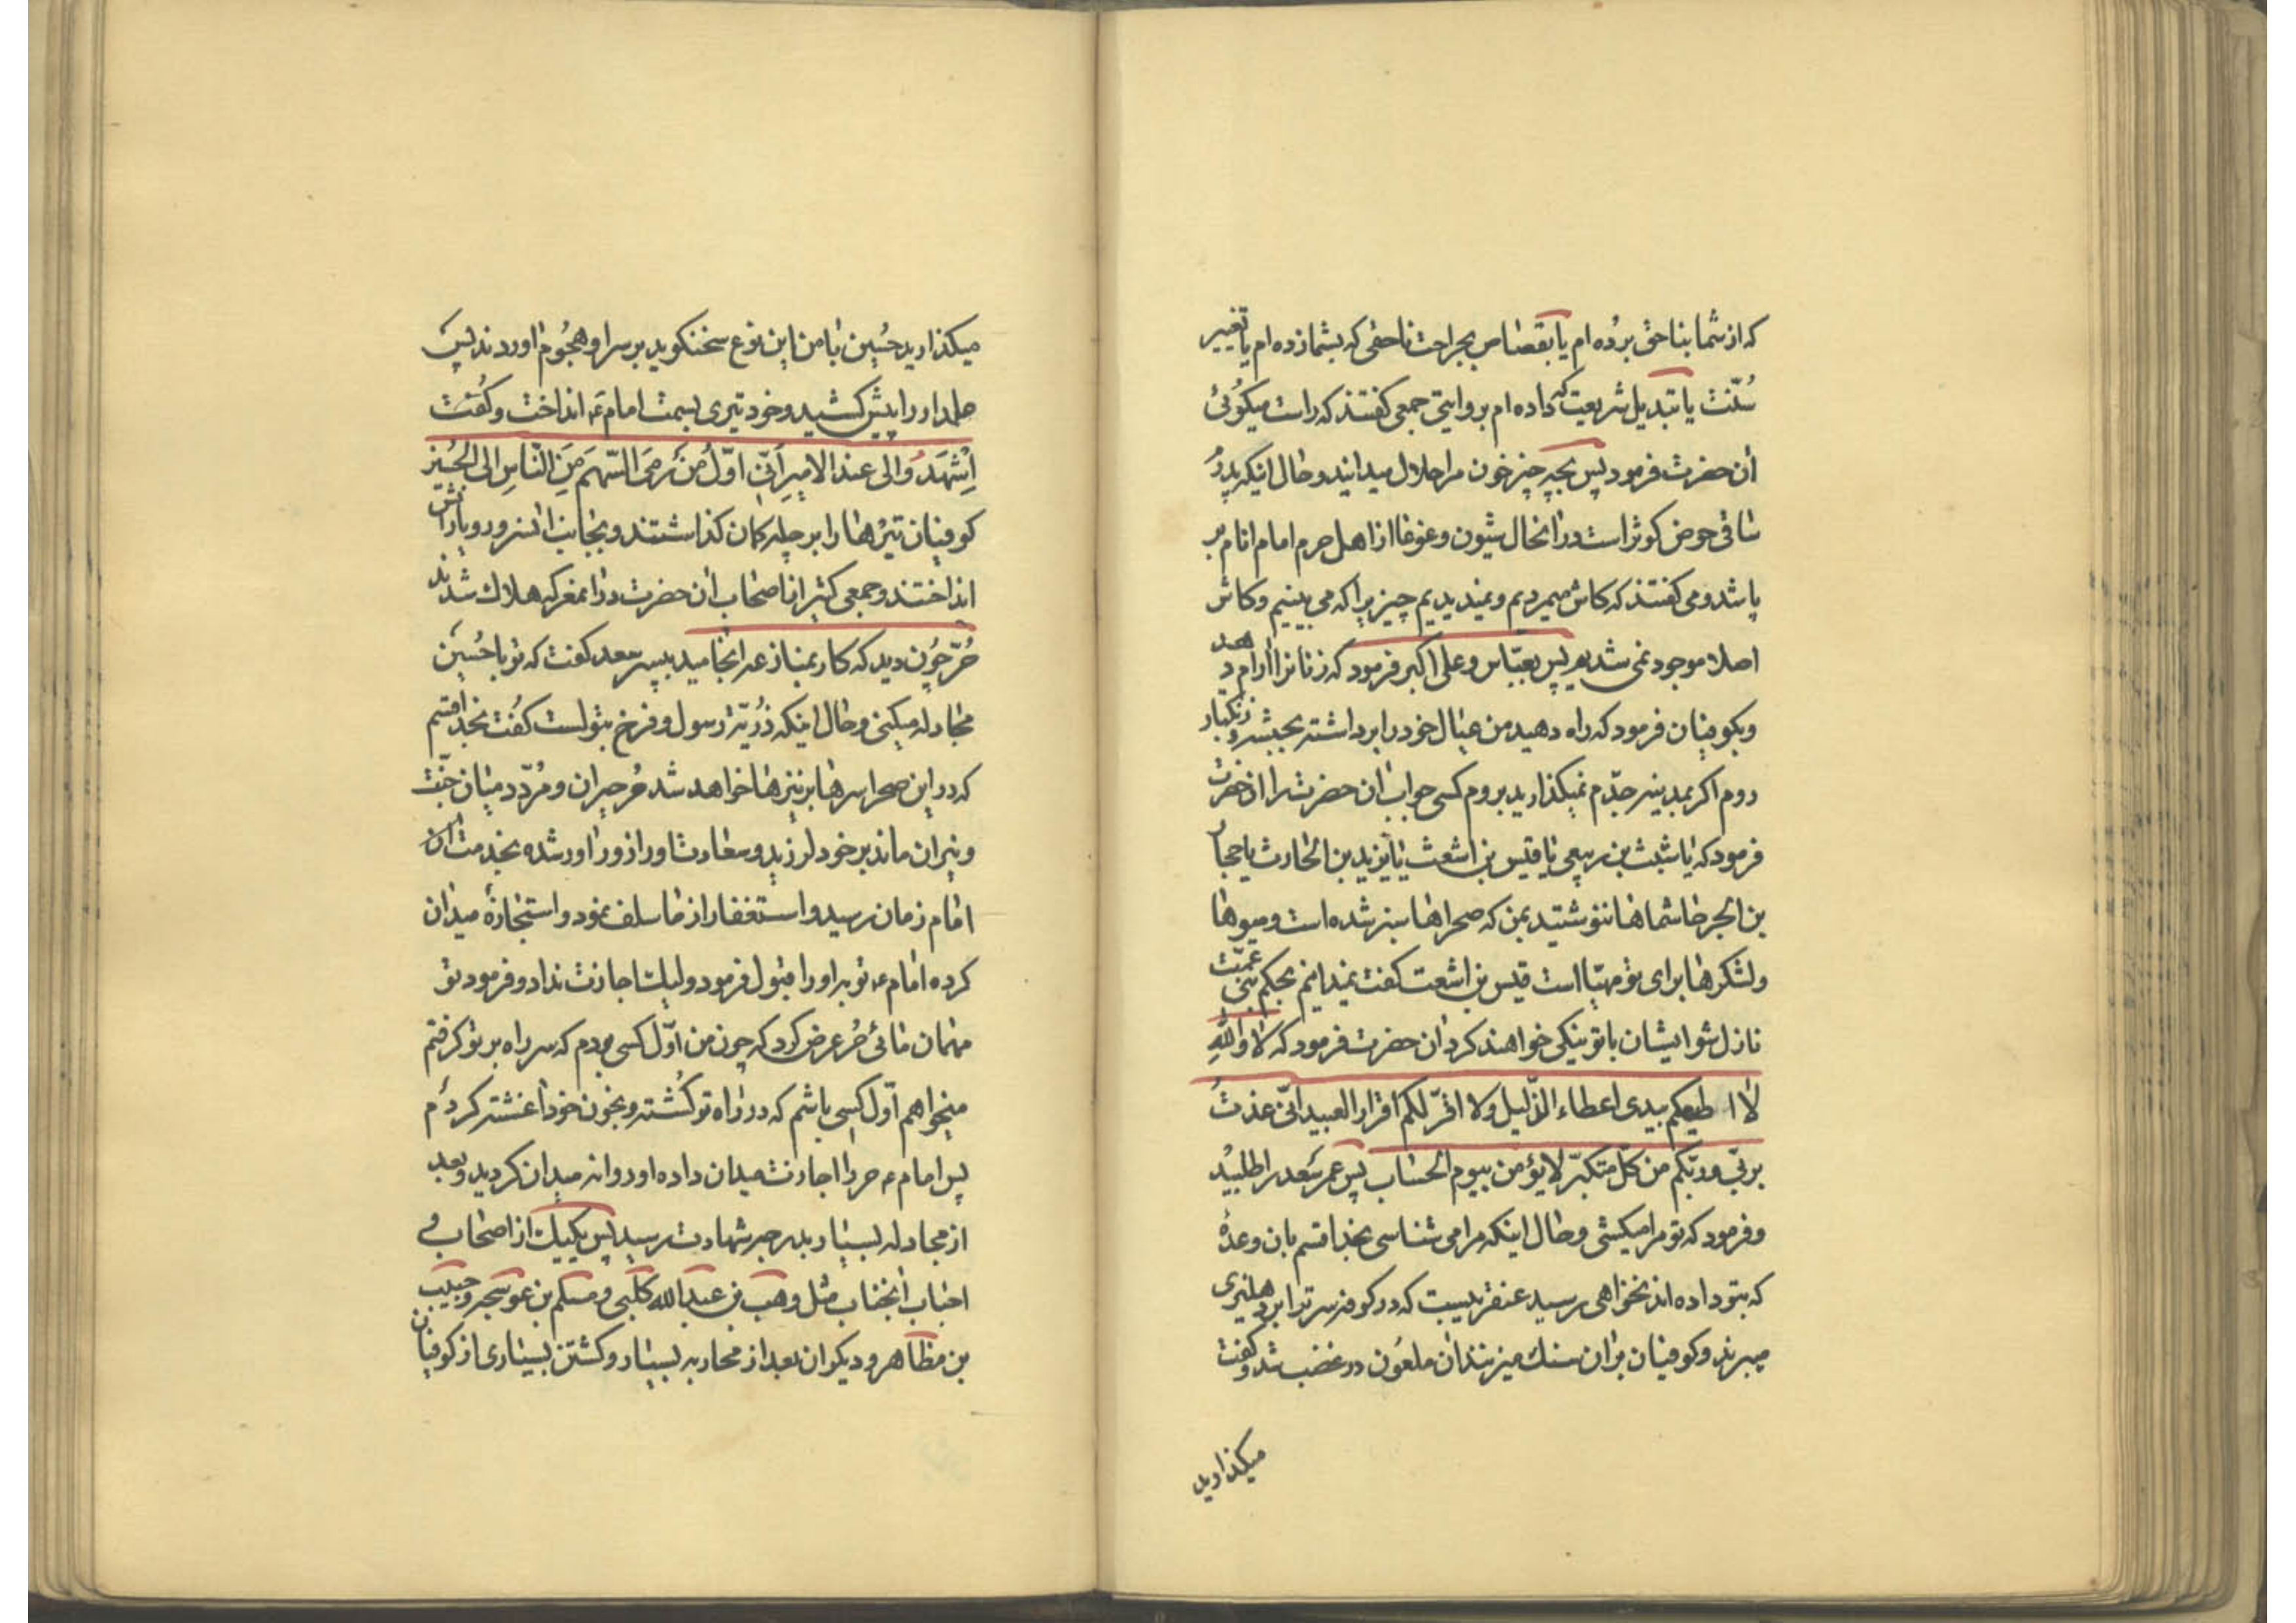 که از شما بناحق برده ام یا بقصاص بجراحت ناحقی که بشما زده ام یا تغییر
سُنّت یا تبدیل شریعت که داده ام بروایتی جمعی گفتند که راست میگوئی
آن حضرت فرمود پس بچه چیز خون مرا حلال میدانید و حال اینکه پدرُ
ساقی حوض کوثر است در انحال شیون و غوغا از اهل حرم امام انام بر
پا شد و می گفتند که کاش میمردیم و نمیدیدیم چیزیرا که می بینیم و کاش
اصلا موجود نمی شدیم پس بعبّاس و علی اکبر فرمود که زنانرا آرام دهید
و بکوفیان فرمود که راه دهید من عیال خود را برداشته بحبشه و زنگبار
روم اگر بمدینه جدّم نمیگذارید بروم کسی جواب ان حضرت را
فرمود که یا شبث بن ربیعی یا قیس بن اشعث یا یزید بن الحارث یا حجار
بن الجر ایا شماها ننوشتید بمن که صحراها سبز شده است و میوها
و لشکرها برای تو مهیّا است قیس بن اشعث گفت نمیدانم بحکم بنی عمّت
نازل شو ایشان با تو نیکی خواهند کرد ان حضرت فرمود که لا والله
لا اطیعکم بیدی اعطاء الذّلیل ولا اقرّ لکم اقرار العبید انّی عذتُ
بربّی و ربّکم من کلّ متکبّر لا یؤمن بیوم الحساب پس عمر سعد را طلبید
و فرمود که تو مرا میکشی و حال اینکه مرا می شناسی بخدا قسم بان وعدهٔ
که بتو داده اند نخواهی رسید عنقریبست که در کوفه سر ترا بر سر نی
میبرند و کوفیان بران سنک میزنند ان ملعُون در غضب شد و گفت
میگذارید
میکذارید حُسین با من این نوع سخن گوید بر سر او هجُوم اورد ند پس
علمدار را پیش کشید و خود تیری بسمت امام ع انداخت و گُفت
اِشْهَدُوا لی عند الامیرِ اَنّی اوّلُ مَنْ رَمیَ السّهمَ مَنَ النّاسِ الی الحُسین
کوفیان تیرُها را بر چله کمان گذاشتند و بجانب انسرور و یارانش
انداختند و جمعی کثیر از اصحاب ان حضرت در انمعرکه هلاک شدند
حُرّ چوُن دید که کار بمنازعه انجامید بپسر سعد گفت که تو با حُسین
مجادله میکنی و حال اینکه ذُریّة رسول و فرخ بتولست گُفت بخدا قسم
که در این صحرا سرها بر نیزها خواهد شد حُر حیران و مُردّد میان جنّت
و نیران ماند بر خود لرزید و سعادت اور از ورآور شده بخدمت ان
امام زمان رسید و استغفار از ما سلف نمود و استجازهٔ میدان
کرده امام ع توبه اورا قبول فرمود ولیک اجازت نداد و فرمود تو
مهمان مائی حُر عرض کرد که چون من اوّل کسی بودم که سر راه بر تو گرفتم
میخواهم اوّل کسی باشم که در راه تو کُشته و بخون خود اغشته کردم
پس امام ع حر را اجازت میدان داده او روانه میدان کردید و بعد
از مجادله بسیار بدرجه شهادت رسید پس یکیک از اصحاب و
احباب انجناب مثل وهب بن عبد الله کلبی و مسلم بن عوسجه و حبیب
بن مظاهر و دیکران بعد از محاربه بسیار و کشتن بسیاری از کوفیان